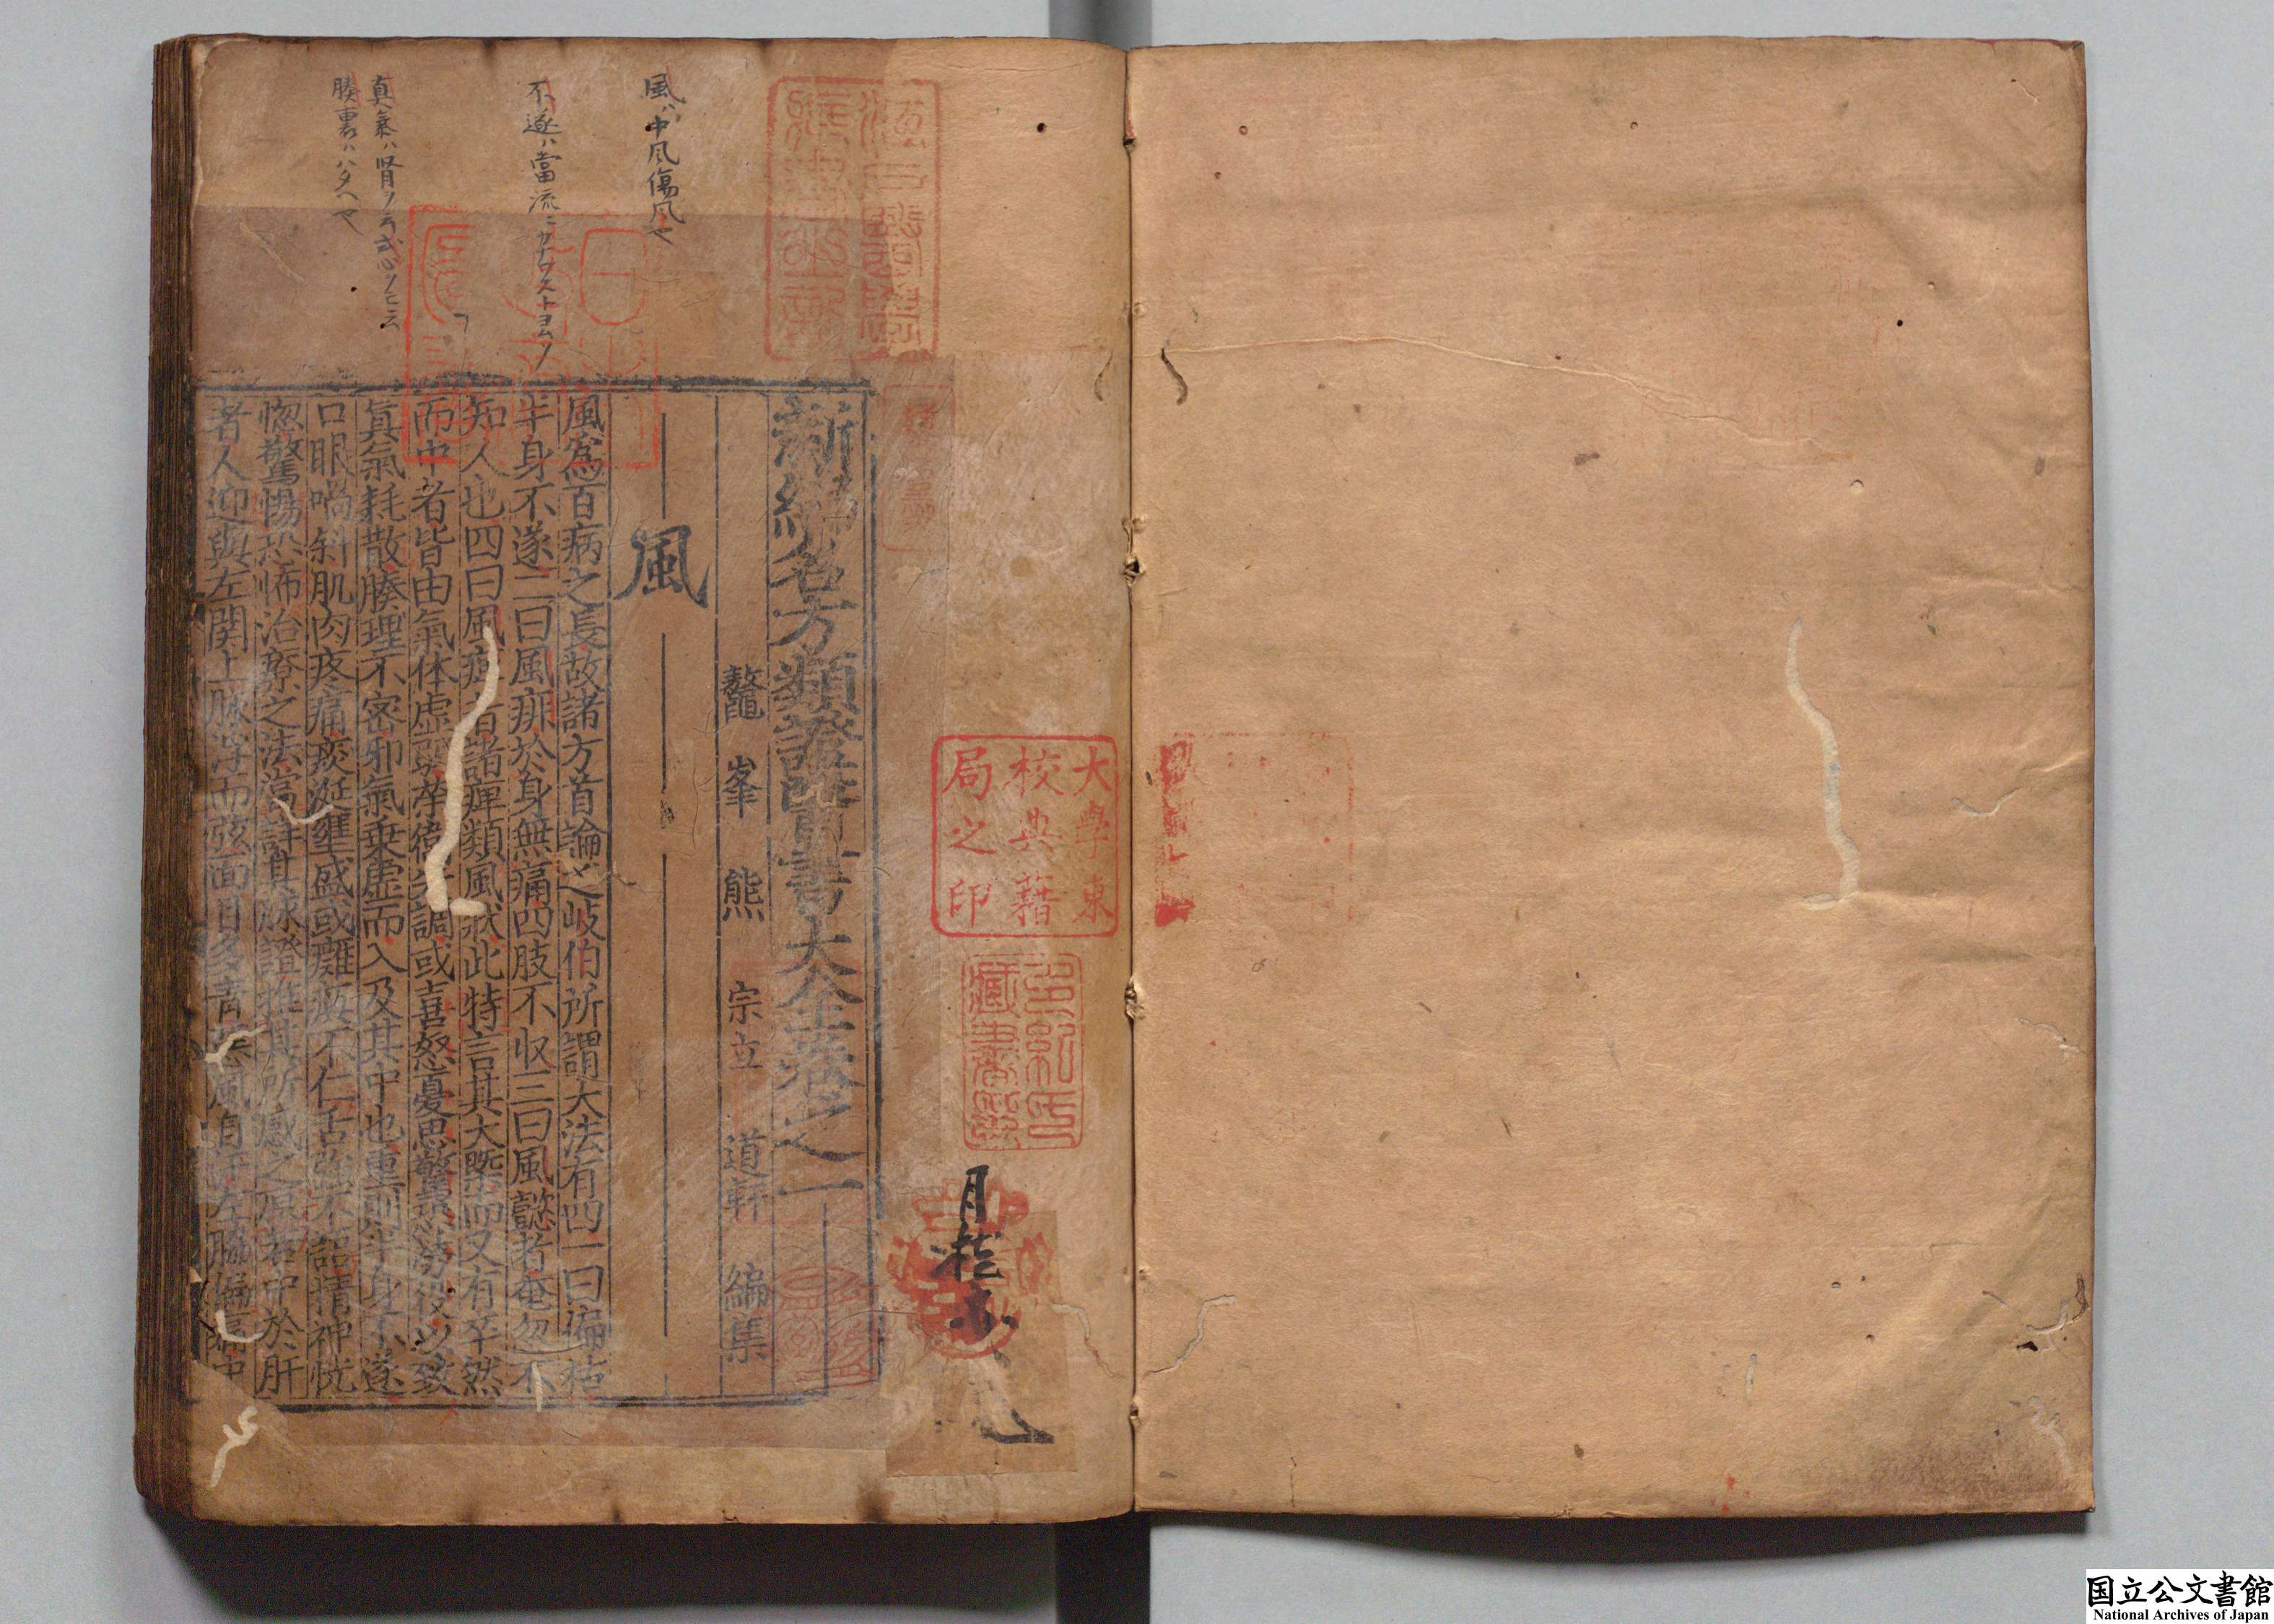 新編名方類證醫書大全卷之一
鼇峯 熊 宗立 道軒 編集
風
風爲百病之長故諸方首論之岐伯所謂大法有四一曰偏枯
半身不遂二曰風痱於身無痛四肢不収三曰風懿者奄忽不
知人也四曰風痺者諸痺類風狀此特言其大槩而又有卒然
而中者皆由氣体虛弱榮衛失調或喜怒憂思驚恐勞役以致
眞氣耗散腠理不密邪氣乗虛而入及其中也重則半身不遂
口眼喎斜肌肉疼痛痰涎壅盛或癱瘓不仁舌強不語精神恍
惚驚惕恐怖治療之法當詳其脉證推其所感之原若中於肝
者人迎與左関上脉浮而弦面目多青惡風自汗左脇偏痛中
風ハ中風傷風也
不遂ハ當流ニカナワストヨムソ
真氣ハ腎ヲ云或心ヲモ云
腠裏ハハタヘ也
大學東
校典藉
局之印
多紀氏
藏書印
江戸醫學
藏書之記
国立公文書館
National Archives of Japan